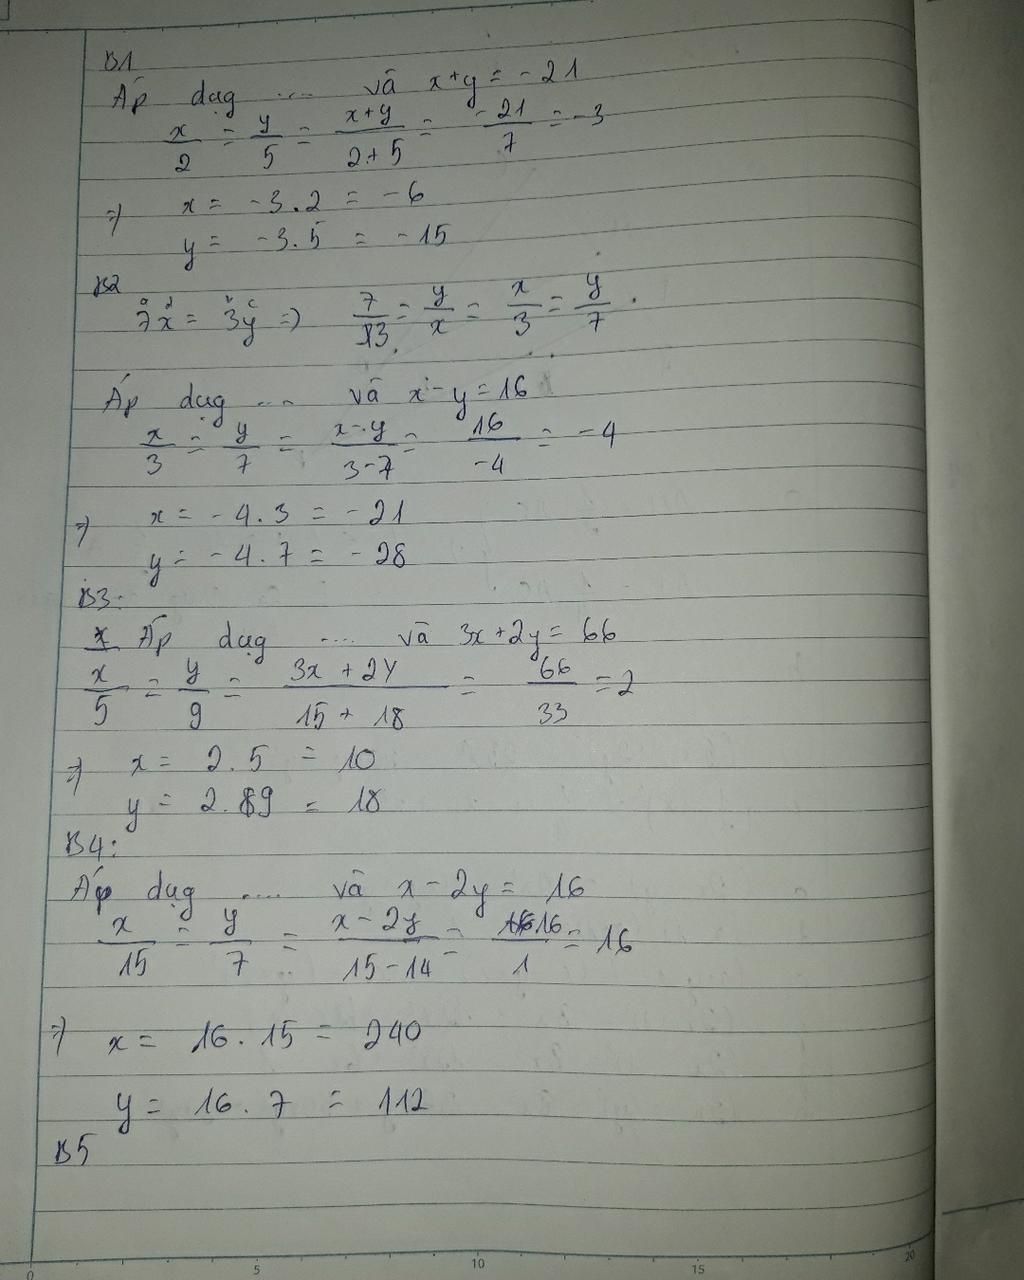 B1
Áp dụg .... và x+y = -21
x/2 = y/5 = x+y/2+5 = -21/7 = -3
=) x = -3.2 = -6
y = -3.5 = -15
B2
a d b c
7x = 3y =) 7/3 = y/x = x/3 = y/7 .
Áp dụg .... và x - y = 16
x/3 = y/7 = x-y/3-7 = 16/-4 = -4
=) x = -4.3 = -21
y = -4.7 = -28
B3:
Áp dụg .... và 3x+2y = 66
x/5 = y/9 = 3x + 2y/15 + 18 = 66/33 = 2
=) x = 2.5 = 10
y = 2.9 = 18
B4:
Áp dụg .... và x - 2y = 16
x/15 = y/7 = x - 2y/15 - 14 = 16/1 = 16
=) x = 16.15 = 240
y = 16.7 = 112
B5
0 5 10 15 20